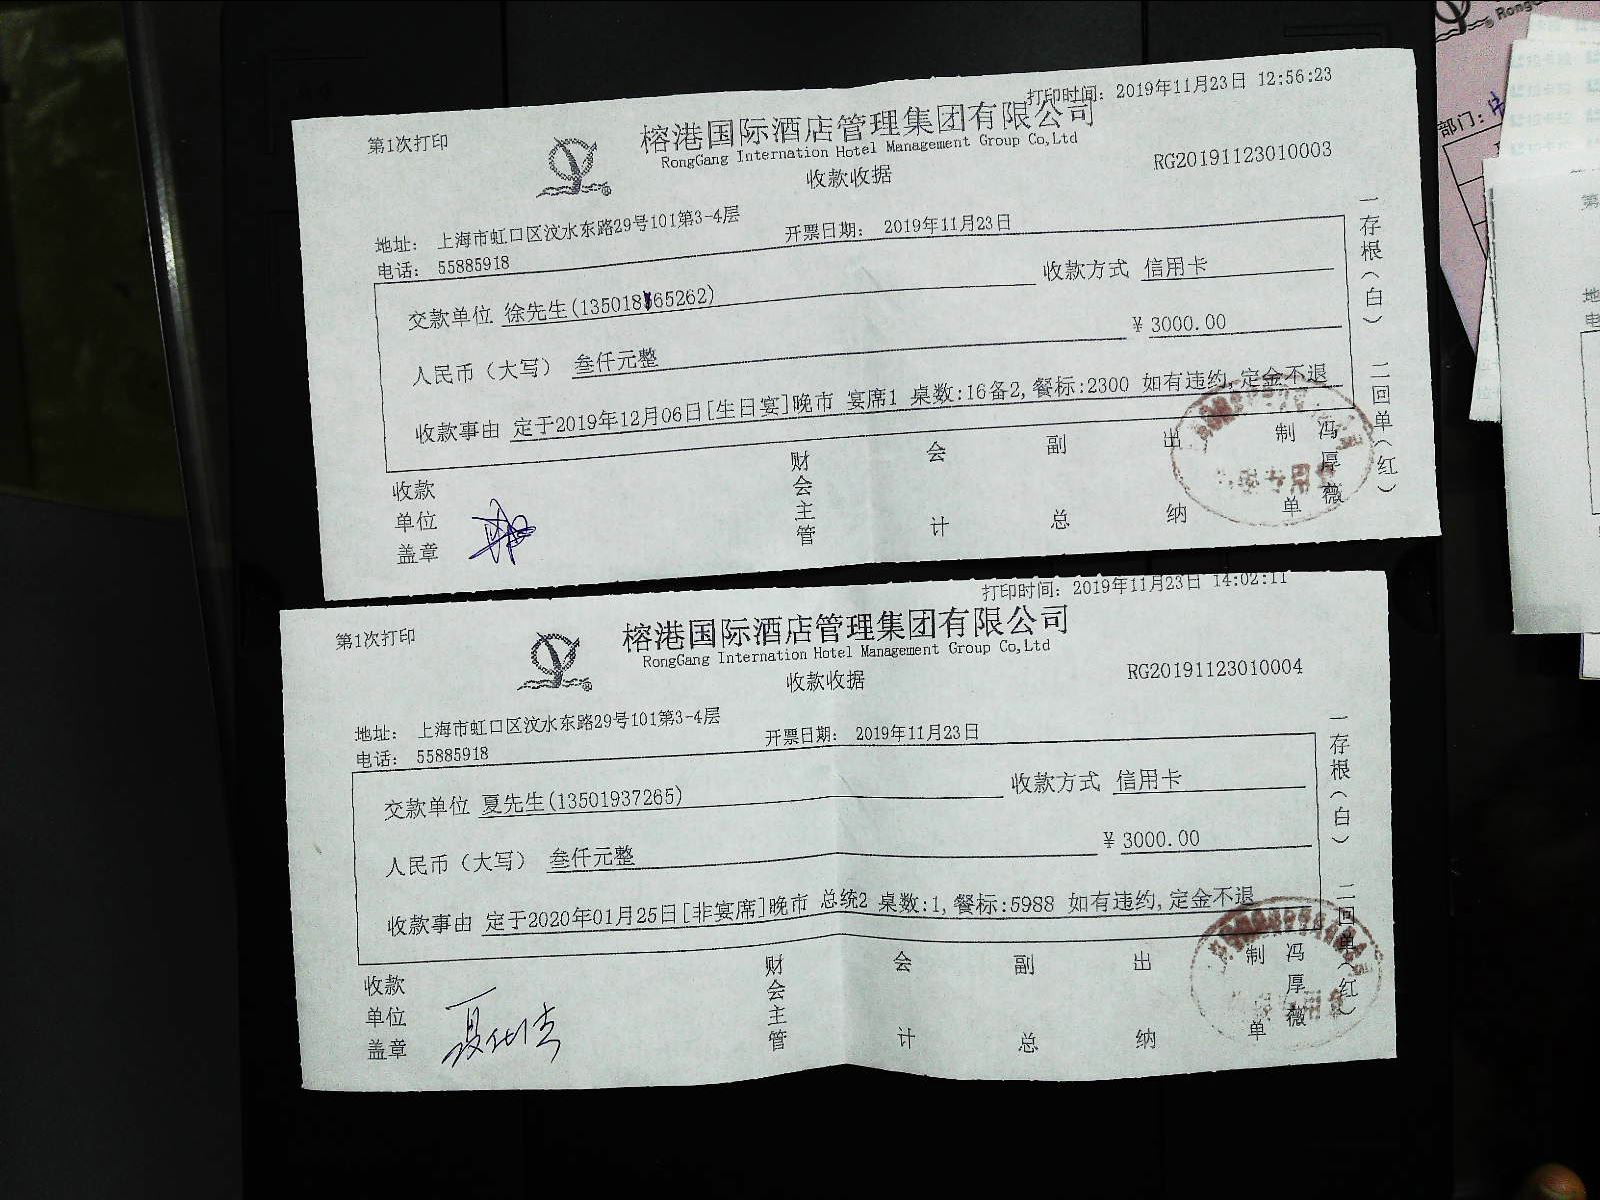 打印时间：2019年11月23日 12:56:23
第1次打印
榕港国际酒店管理集团有限公司
RongGang Internation Hotel Management Group Co,Ltd
收款收据
RG20191123010003
地址： 上海市虹口区汶水东路29号101第3-4层
开票日期： 2019年11月23日
电话： 55885918
交款单位 徐先生(135018 65262)
收款方式 信用卡
人民币（大写） 叁仟元整
¥ 3000.00
收款事由 定于2019年12月06日[生日宴]晚市 宴席1 桌数:16备2,餐标:2300 如有违约,定金不退
收款单位盖章
财会主管
会计
副总
出纳
制单
冯厚薇
一存根（白）
二回单（红）
打印时间：2019年11月23日 14:02:11
第1次打印
榕港国际酒店管理集团有限公司
RongGang Internation Hotel Management Group Co,Ltd
收款收据
RG20191123010004
地址： 上海市虹口区汶水东路29号101第3-4层
开票日期： 2019年11月23日
电话： 55885918
交款单位 夏先生(13501937265)
收款方式 信用卡
人民币（大写） 叁仟元整
¥ 3000.00
收款事由 定于2020年01月25日[非宴席]晚市 总统2 桌数:1,餐标:5988 如有违约,定金不退
收款单位盖章
财会主管
会计
副总
出纳
制单
冯厚薇
一存根（白）
二回单（红）
部门：